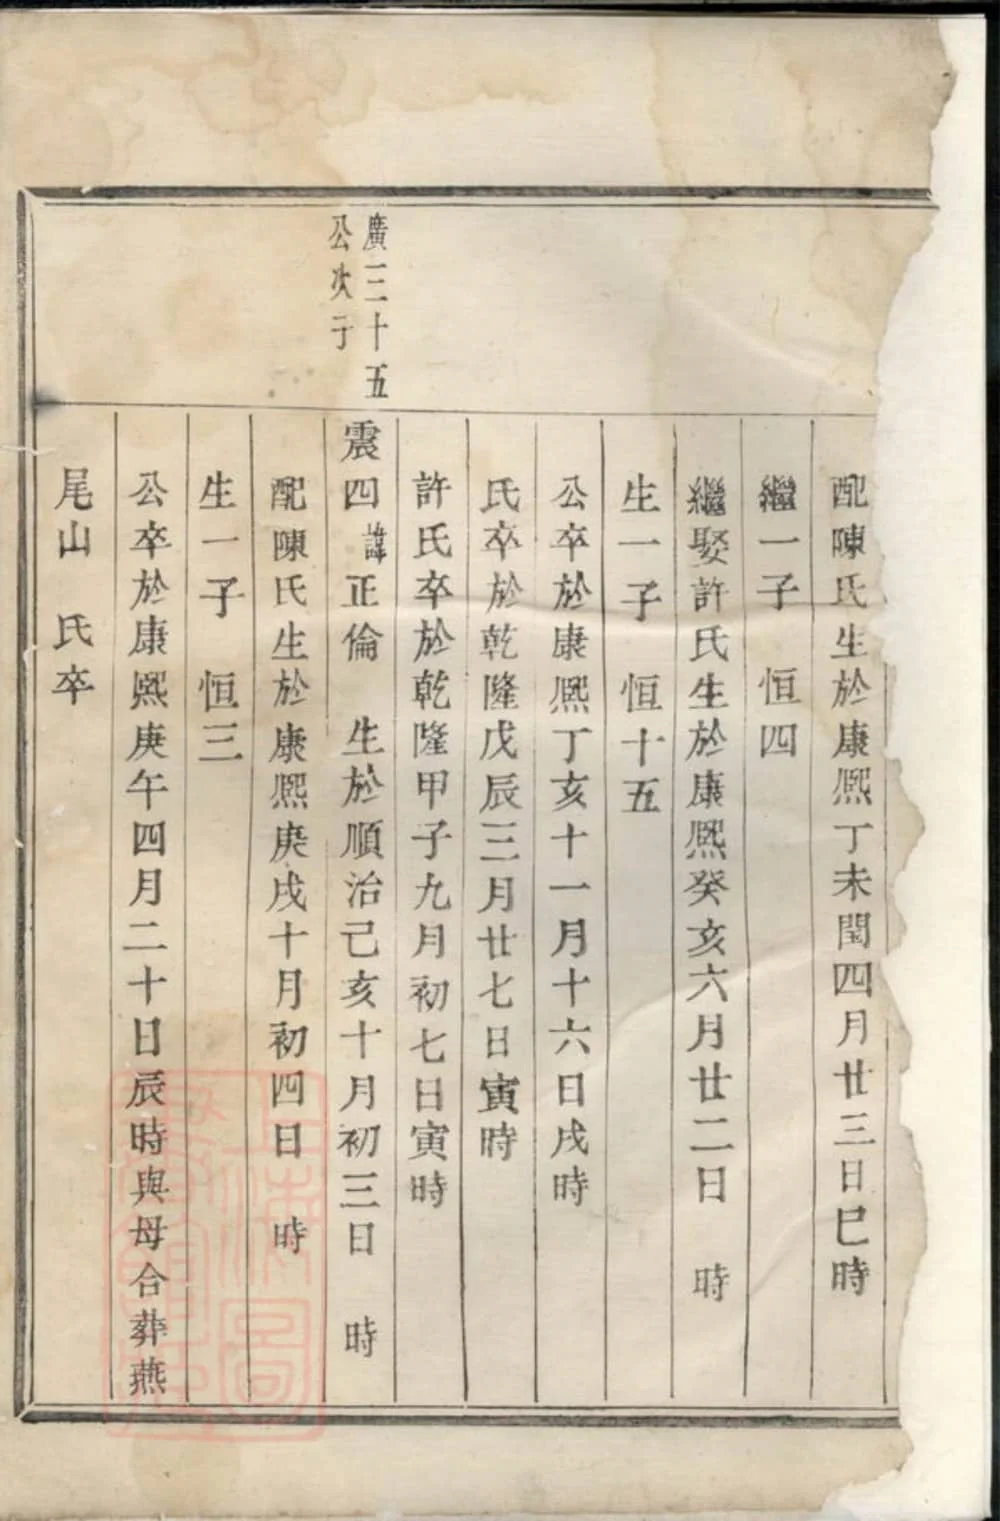 配陳氏生於康熙丁未閏四月廿三日巳時
繼一子 恒四
繼娶許氏生於康熙癸亥六月廿二日 時
生一子 恒十五
公卒於康熙丁亥十一月十六日戌時
氏卒於乾隆戊辰三月廿七日寅時
許氏卒於乾隆甲子九月初七日寅時
廣三十五
公次子
震四 諱正倫 生於順治己亥十月初三日 時
配陳氏生於康熙庚戌十月初四日 時
生一子 恒三
公卒於康熙庚午四月二十日辰時與母合葬燕
尾山 氏卒
上海圖
書館藏